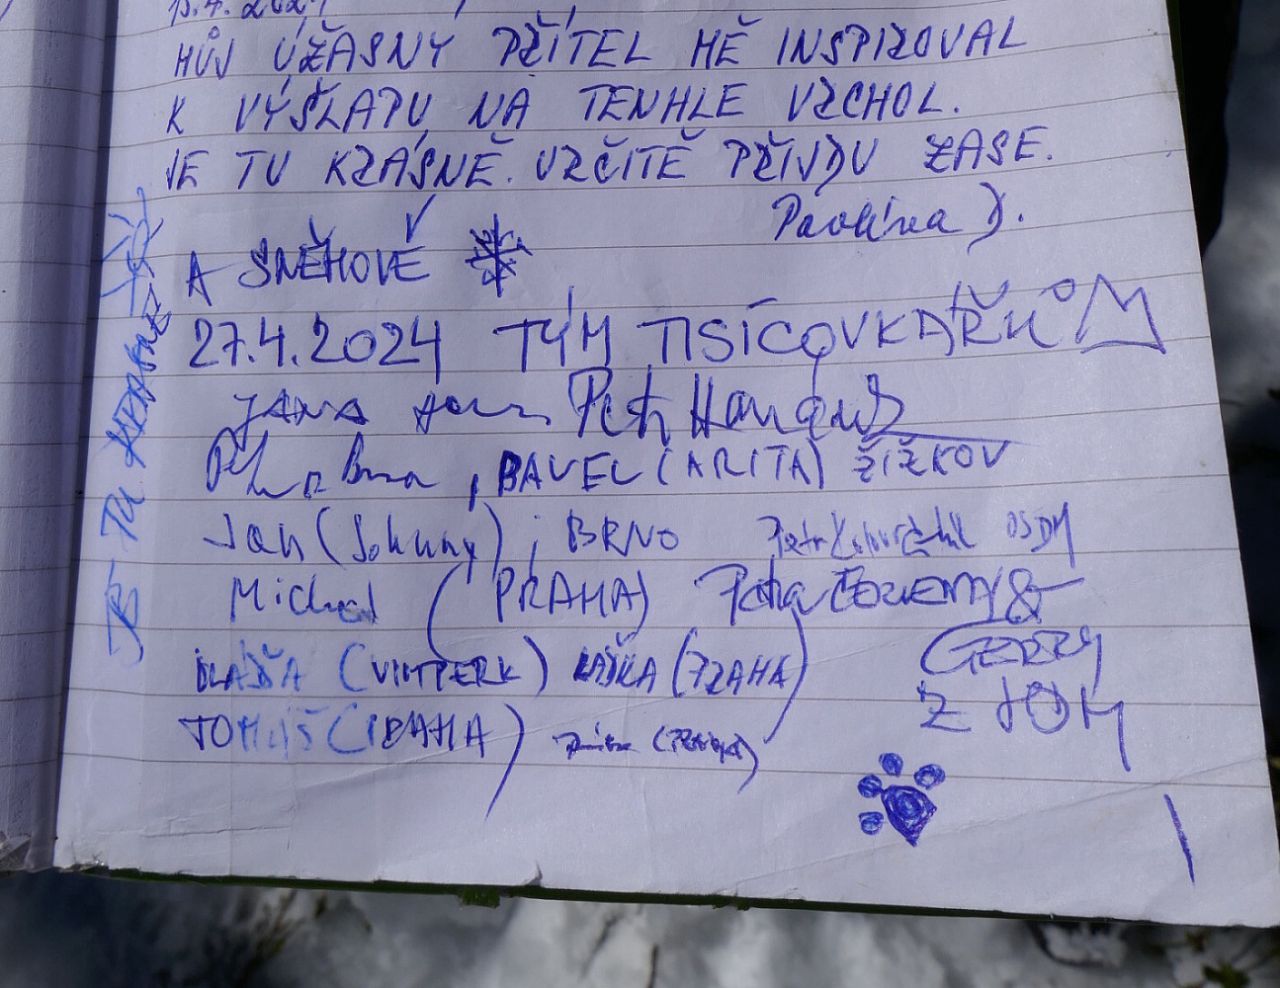 MŮJ ÚŽASNÝ PŘÍTEL MĚ INSPIROVAL
K VÝŠLAPU NA TENHLE VRCHOL.
JE TU KRÁSNĚ. URČITĚ PŘIJDU ZASE.
Pavlína D.
A SNĚHOVĚ
27.4.2024 TÝM TISÍCOVKAŘŮ
JANA Petr
, PAVEL (ARITA) ŽIŽKOV
Jan (Johnny), BRNO Petr
Michal (PRAHA) Petra &
GERRY
VLAĎA (VIMPERK) RAŠKA (PRAHA)
Z JOM
TOMÁŠ (PRAHA) (PRAHA)
JE TU KRÁSNĚ